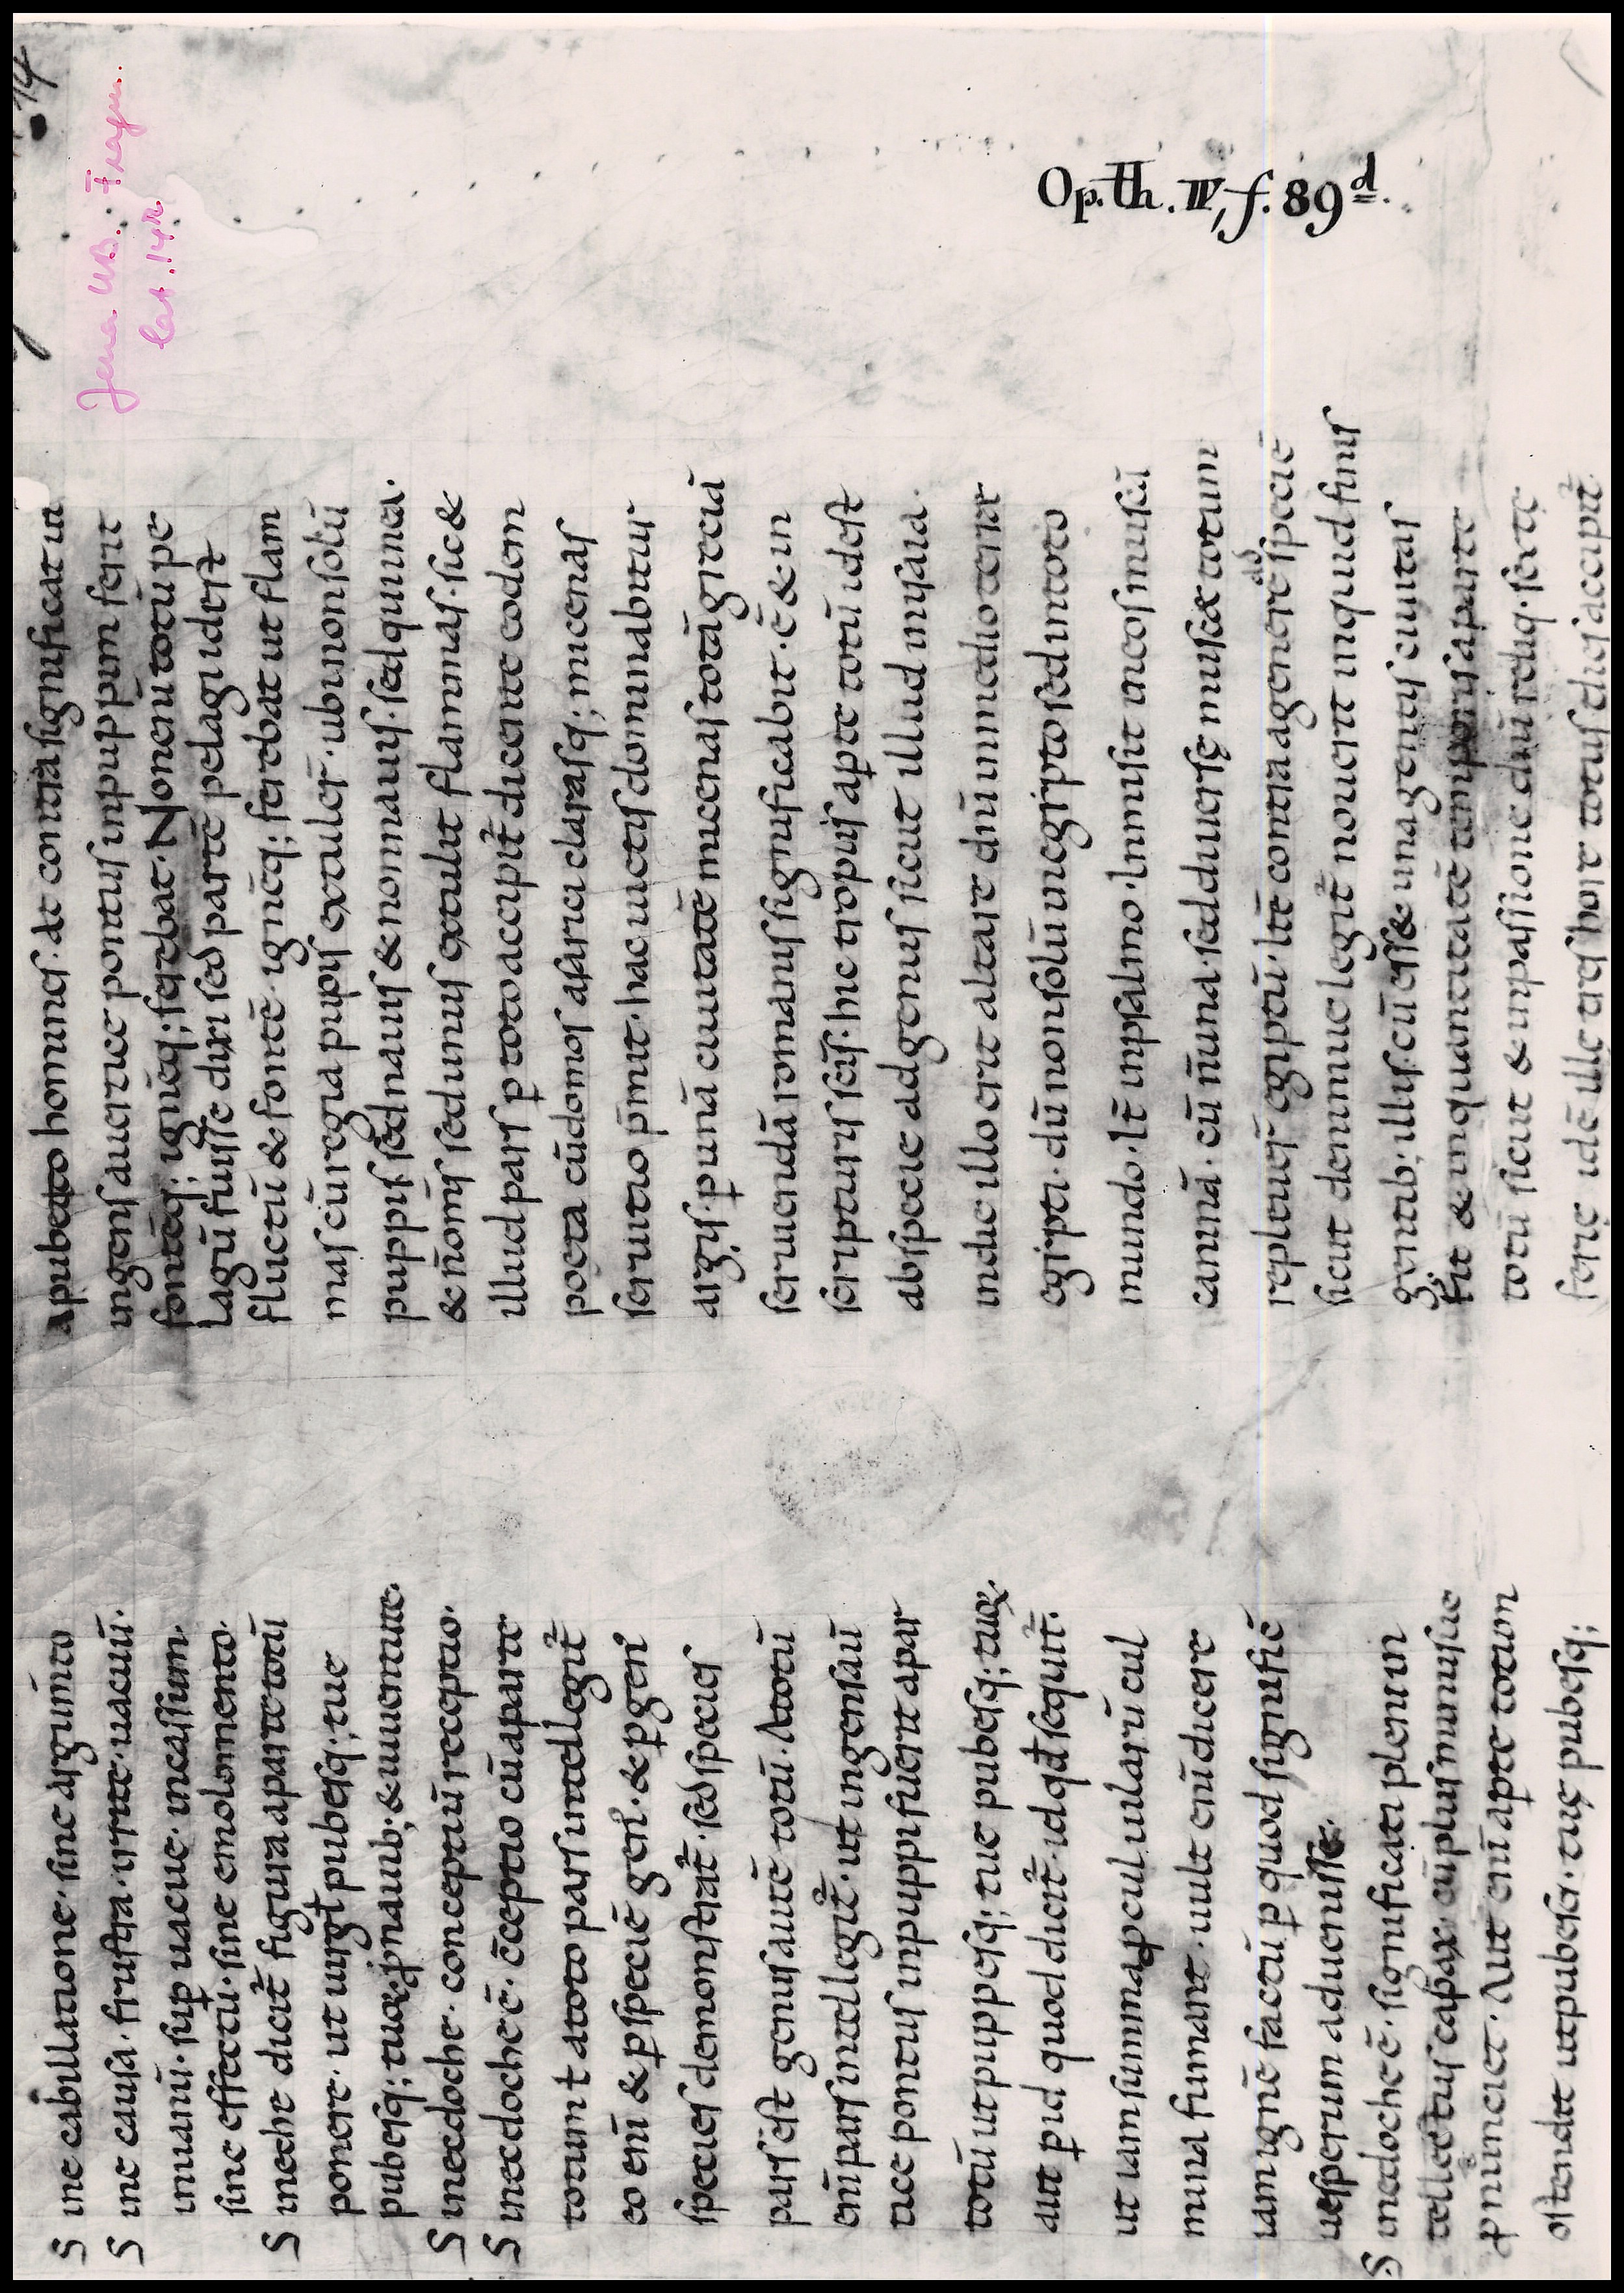 Jena UB. Fragm.
lat. 14
Op. th. IV, f. 89d.
Sine cabillatione · sine argum̄to
Sine causa · frustra · irrite · uacuū ·
inuanū · sup̱ uacue · incassum ·
sine effectu · sine emolomento ·
Sinecche dicit᷑ figura aparte totū
ponere · ut uirgł pubesq; tue
pubesq; tuoꝝ · ꝓnauib; & iuuentute ·
Sinecdoche · conceptiū receptio ·
Sinecdoche ē · c̄ceptio cū aparte
totum ł atoto pars intellegit᷑
eo eni & ꝑspeciē gen̄ · & ꝑgen̄
species demonstrat᷑ · sed species
pars est genus autē totū · Atotū
eni pars intellegit᷑ · ut ingens aū
tice pontus inpuppi fuerit apar
totū ut puppesq; tue pubesq; tuoꝝ ·
aut ꝑ id quod dicit᷑ · id qđ sequit᷑ ·
ut iam summa ꝓcul uillarū cul
mina fumant · uult eni dicere
iam igne factū ꝑ quod significē
uesperum aduenisse ·
Sinecdoche ē · significati plenū in
tellectus capax cū plus minusue
ꝓnunciet · Aut eni apte totum
ostendit ut pubesq; · tuę pubesq;
A pubetto homines · at contra significat in
ingens auertice pontus inpuppim ferit
fontēq; ignēq; ferebat · Non enī totū pe
lagū fuisse dixi sed partē pelagi idest
fluctū & fontē · ignēq; ferebat ut flam
mas cū regia pupis extuler̄ · ubi non solū
puppis sed nauis & non nauis · sed qui in ea ·
& n̄ om̄s sed unus extulit flammas · sic &
illud pars ꝑ toto accipit᷑ dicente eodem
poeta cū domos asarici clarasq; micenas
seruitio p̄mit · hac uictis dominabitur
argis · ꝑ unā ciuitatē micenas totā greciā
seruiendā romanis significabit · ē & in
scripturis scīs · hic tropus apte totū idest
abspecie adgenus sicut illud in isaia ·
indie illo erit altare dn̄i in medio terrae
egipti · dū non solū in egipto sed in toto
mundo · It̄ inpsalmo · Inmisit in eos muscā
caninā · cū n̄ una sed diuersę muscae totum
repleuer̄ egiptū · Itē contra agenere ad speciē
sicut denniue legit᷑ nouerit inquid finis
gentib; illis · cū ess& una gentis ciuitas
Fit & inquantitatē temporis aparte
totū sicut & inpassione dn̄i reliq · sexte
ferię idē ille tres hore totus dies accipit᷑ ·